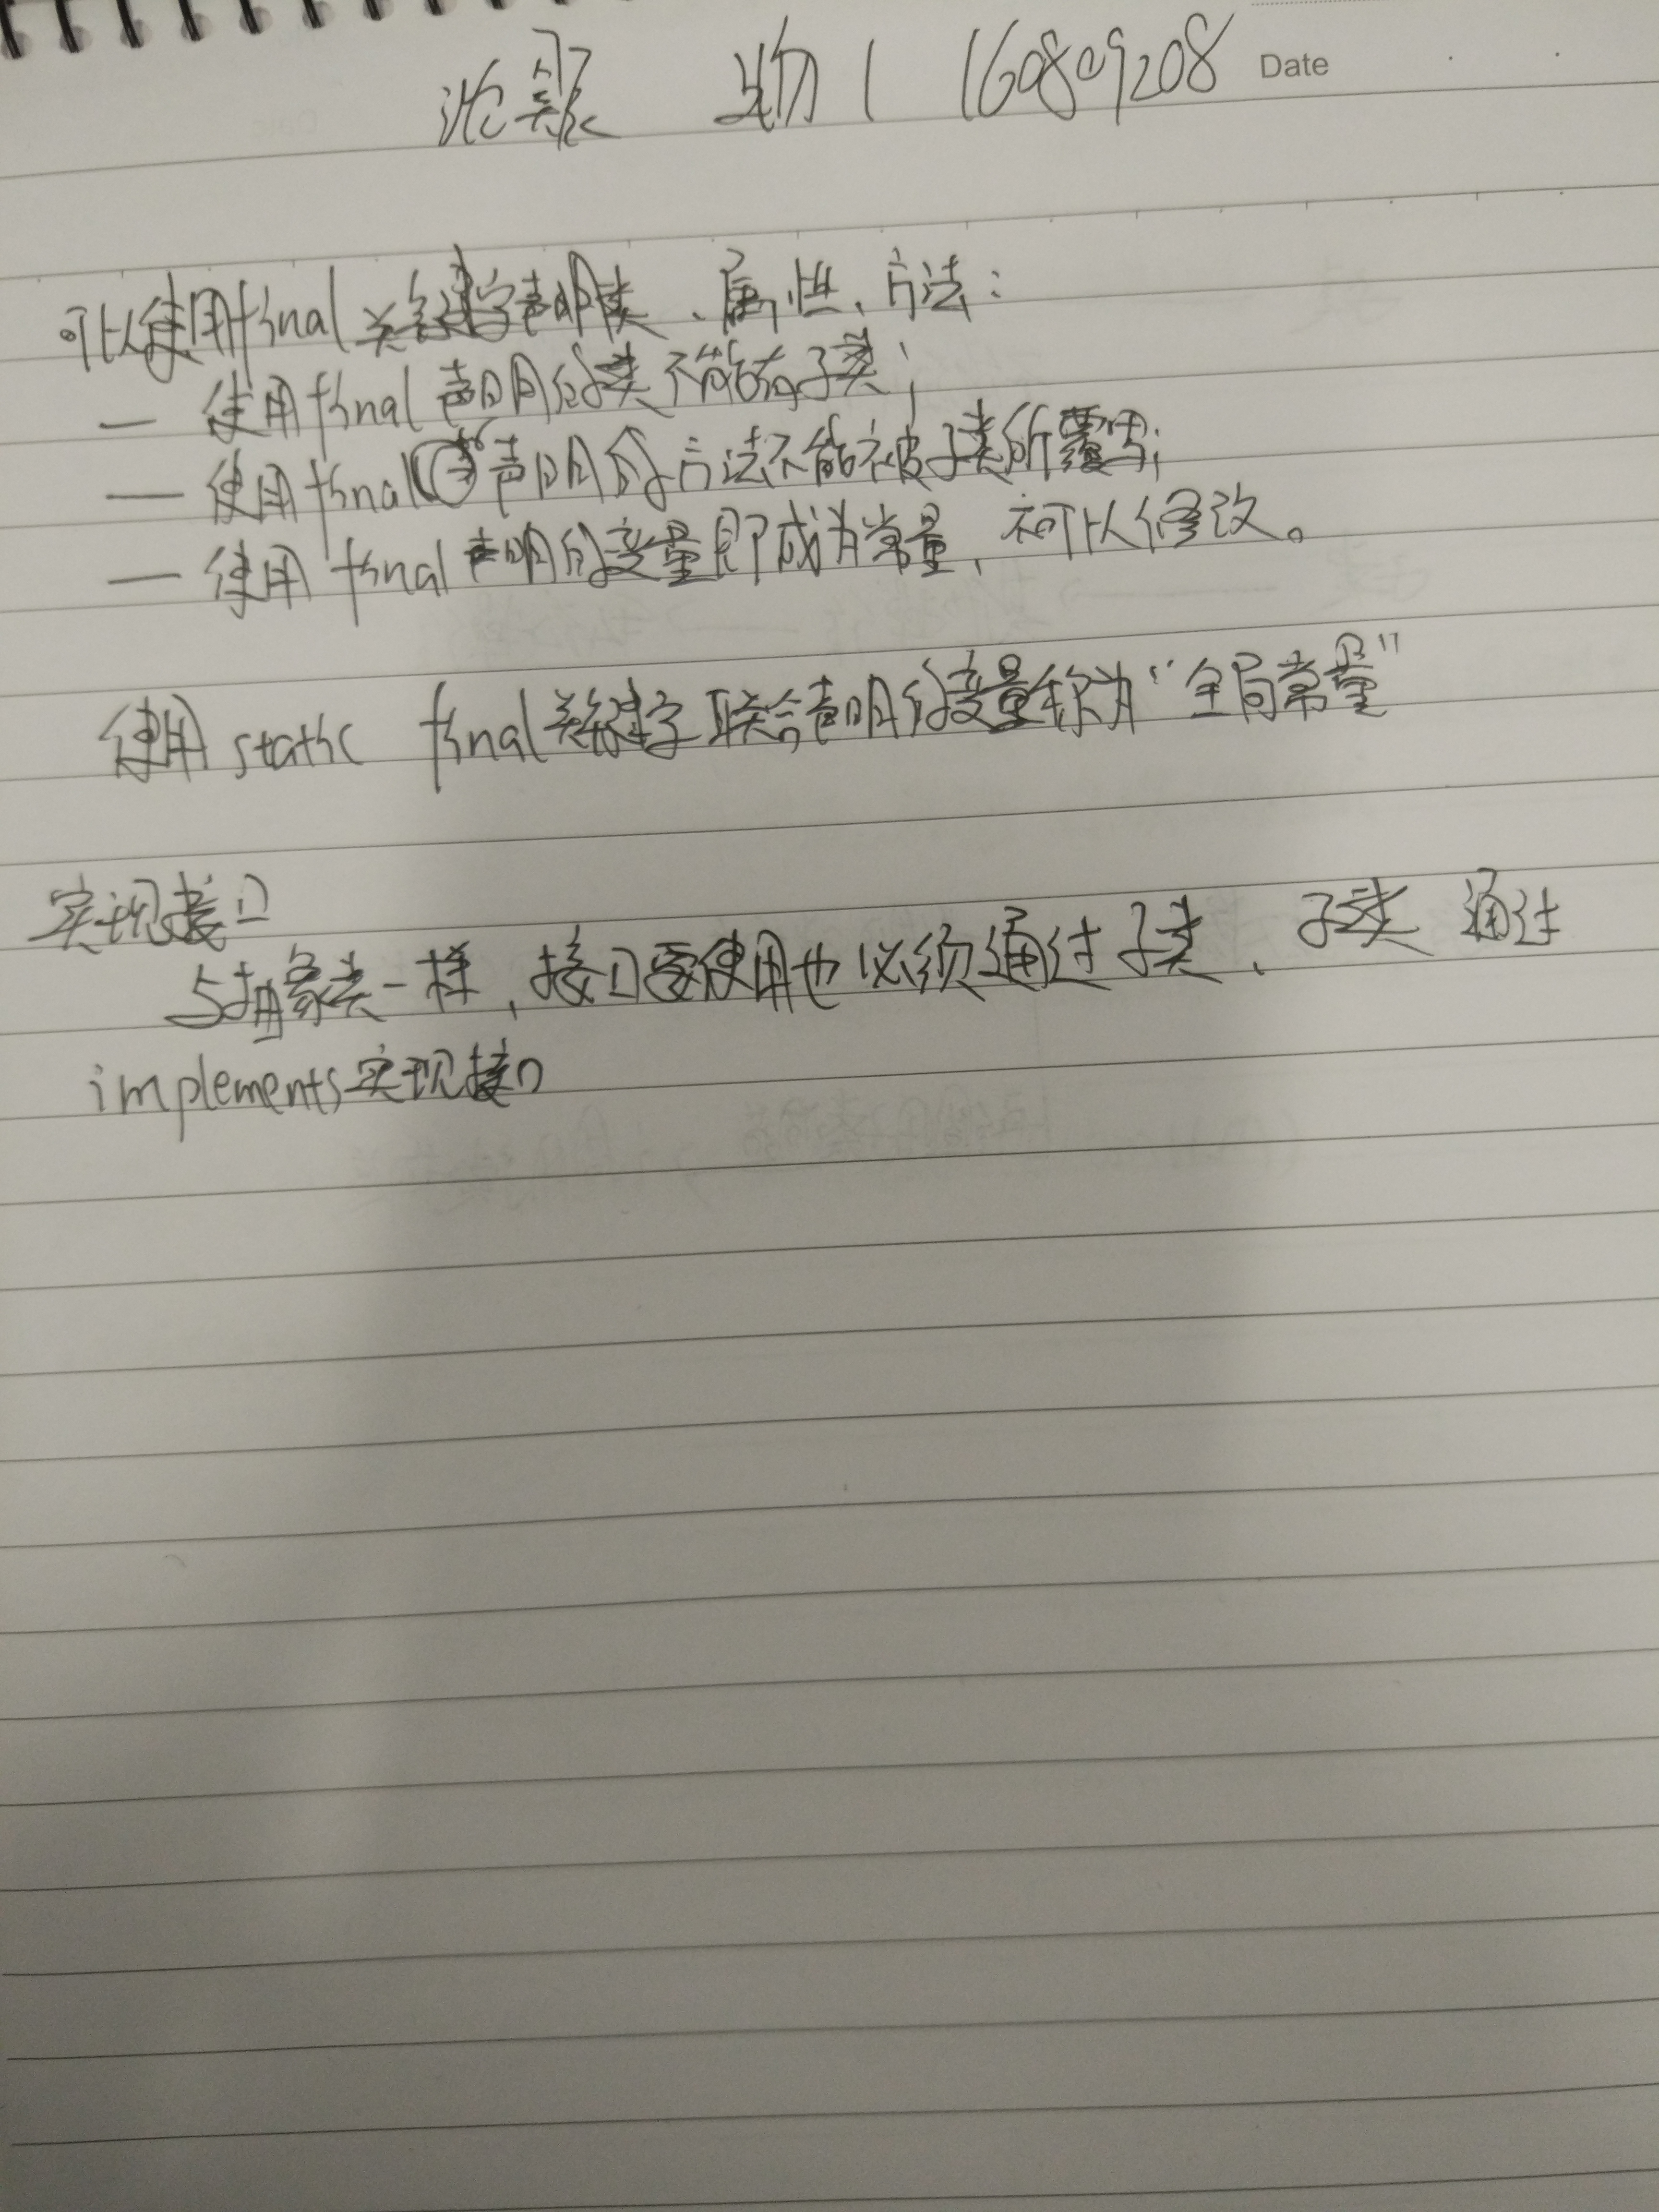 沈 物1 160809208 Date
可以使用final关键字声明类、属性、方法：
— 使用final声明的类不能有子类；
— 使用final声明的方法不能被子类所覆写；
— 使用final声明的变量即成为常量，不可以修改。
使用static final关键字联合声明的变量称为“全局常量”
实现接口
与抽象类一样，接口要使用也必须通过子类、子类通过
implements实现接口